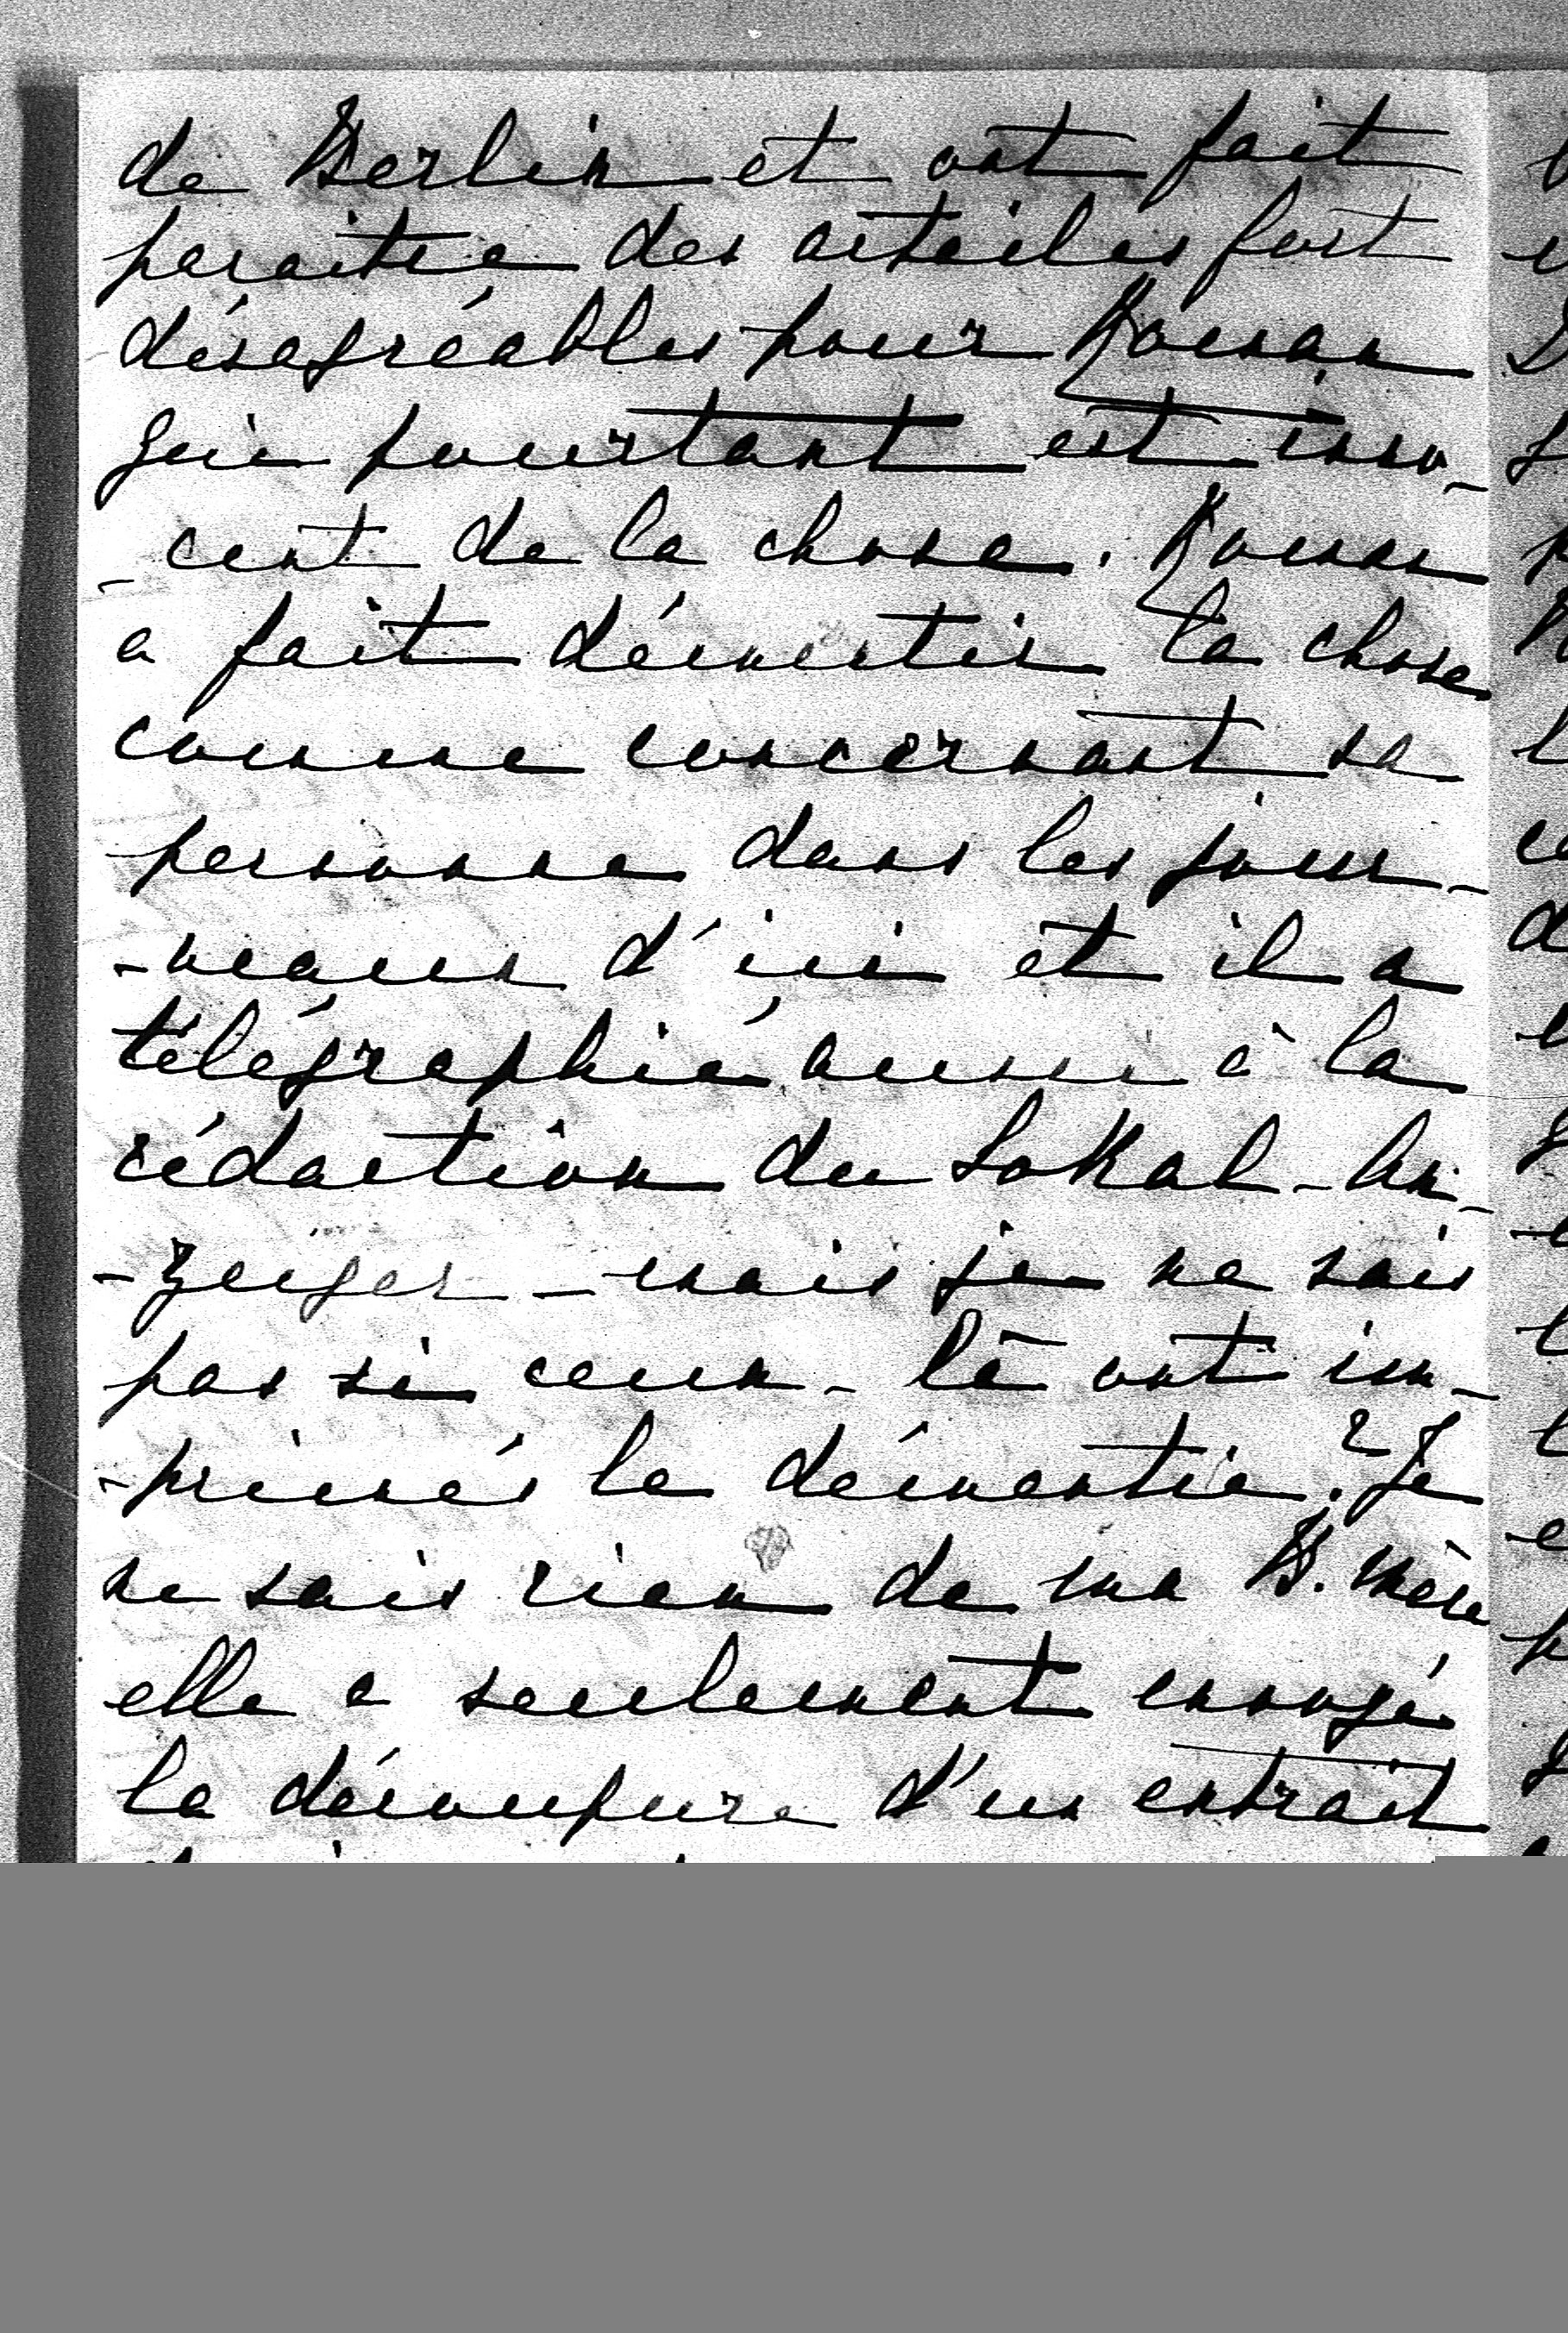 de Berlin et ont fait
paraitre des articles fort
désagréables pour Roman
qui pourtant est inno-
-cent de la chose. Roman
a fait démentir la chose
comme concernant sa
personne dans les jour-
-neaux d'ici et il a
télégraphié aussi à la
rédaction du Lokal-An-
-zeiger - mais je ne sais
pas si ceux-là ont im-
-primés le démentie.? Je
ne sais rien de ma B. mère
elle a seulement envoyé
la découpure d'un extrait